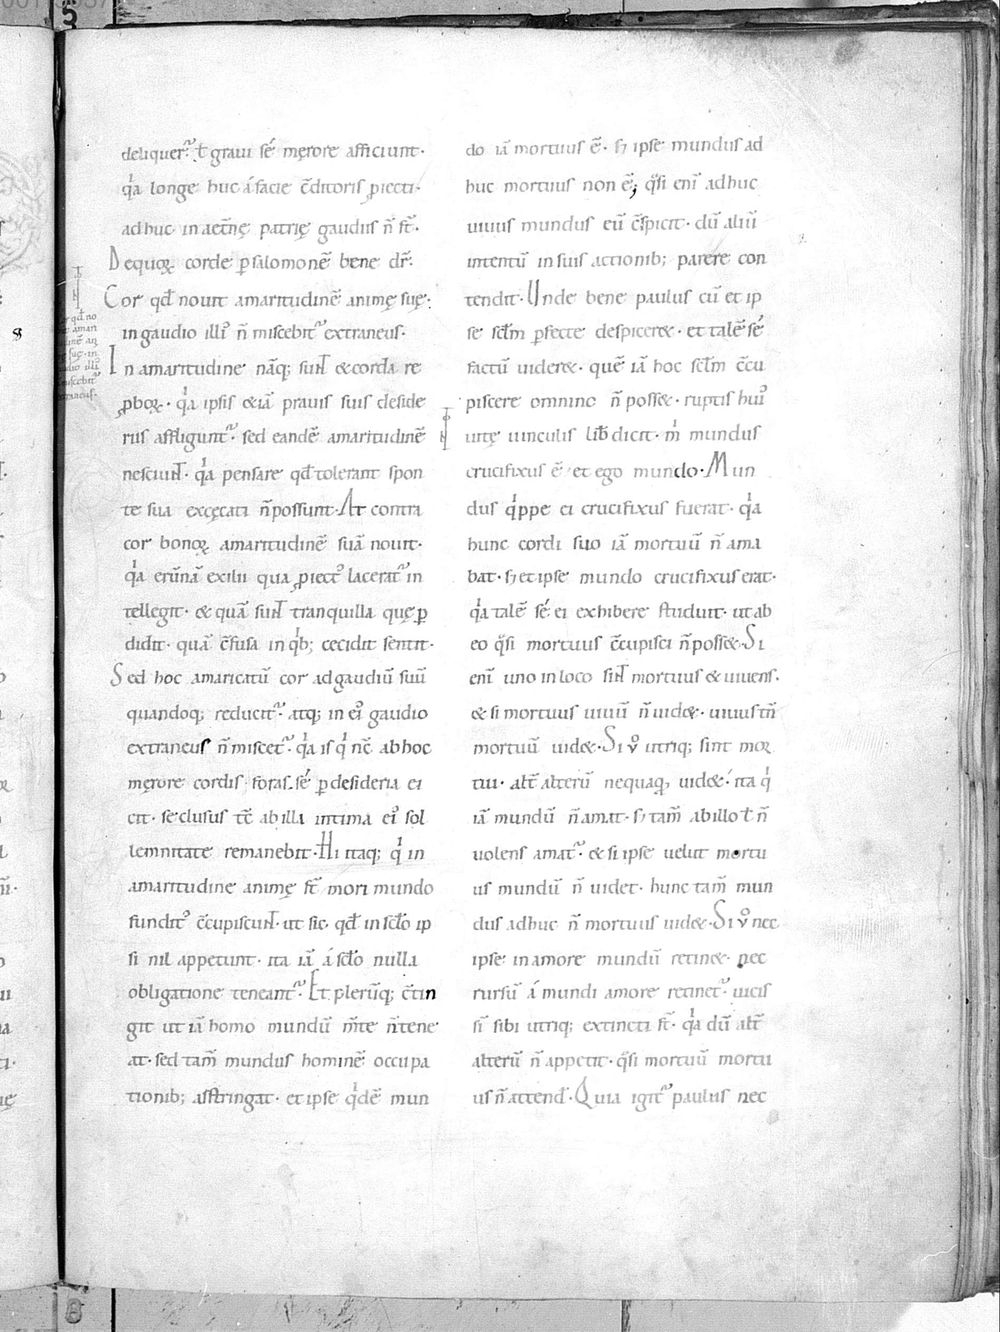 deliquerꝰ. ł graui sé męrore afficiunt·
qͥa longe huc á facie c̄ditoris ꝓiecti·
adhuc in aet̄nę patrię gaudiis n̄ st̄·
Dequoꝝ corde ꝑ salomonē bene dr̄·
Cor qđ nouit amaritudinē animę suę:
in gaudio illiꝰ n̄ miscebit᷑ extraneus·
In amaritudine nāq; sunt & corda re
ꝓboꝝ· qͥa ipsis &iā prauis suis deside
riis affligunt᷑· sed eandē amaritudinē
nesciunt· qͥa pensare qđ tolerant spon
te sua excęcati n̄ possunt· At contra
cor bonoꝝ amaritudinē suā nouit·
qͥa erūnā exilii qua ꝓiectꝰ lacerat᷑ in
tellegit· & quā sunt tranquilla quę ꝑ
didit· quā c̄fusa in qͥb; cecidit sentit·
Sed hoc amaricatū cor ad gaudiū suū
quandoq; reducit᷑· atq; in eiꝰ gaudio
extraneus n̄ miscet᷑· qͥa is qͥ nc̄ ab hoc
męrore cordis foras sé ꝑ desideria ei
cit· seclusus tc̄ ab illa intima eiꝰ sol
lemnitate remanebit· Hi itaq; qͥ in
amaritudine animę st̄ mori mundo
funditꝰ c̄cupiscunt· ut sic qđ in sc̄lo ip
si nil appetunt· ita iā á sc̄lo nulla
obligatione teneant᷑· Et plerūq; c̄tin
git ut iā homo mundū m̄te n̄ tene
at· sed tam̄ mundus hominē occupa
tionib; astringat· et ipse qͥdē mun
do iā mortuus ē· sꝫ ipse mundus ad
huc mortuus non ē; qͣsi eni᷑ adhuc
uiuus mundus eū c̄spicit· dū aliū
intentū in suis actionib; parere con
tendit· Unde bene paulus cū et ip
se sc̄lm ꝑfecte despicere&· et talē sé
factū uidere&· quē iā hoc sc̄lm c̄cu
piscere omnino n̄ poss&· ruptis huiꝰ
uitę uinculis lib̄ dicit· m͡ mundus
crucifixus ē· et ego mundo· Mun
dus qͥppe ei crucifixus fuerat· qͥa
hunc cordi suo iā mortuū n̄ ama
bat· sꝫ et ipse mundo crucifixus erat·
qͥa talē sé ei exhibere studuit· ut ab
eo qͣsi mortuus c̄cupisci n̄ poss&· Si
eni᷑ uno in loco sint mortuus & uiuens·
& si mortuus uiuū n̄ uid&· uiuus tn̄
mortuū uid&· Si ṽ utriq; sint mor
tui· alt̄ alterū nequaq̄ uid&· ita qͥ
iā mundū n̄ amat· sꝫ tam̄ ab illo ł n̄
uolens amat᷑· & si ipse uelut mortu
us mundū n̄ uidet· hunc tam̄ mun
dus adhuc n̄ mortuus uid&· Si ṽ nec
ipse in amore mundū retin&· nec
rursū á mundi amore retinet᷑· uicis
si᷑ sibi utriq; extincti st̄· qͥa dū alt̄
alterū n̄ appetit· qͣsi mortuū mortu
us n̄ attend̄· Quia igit᷑ paulus nec